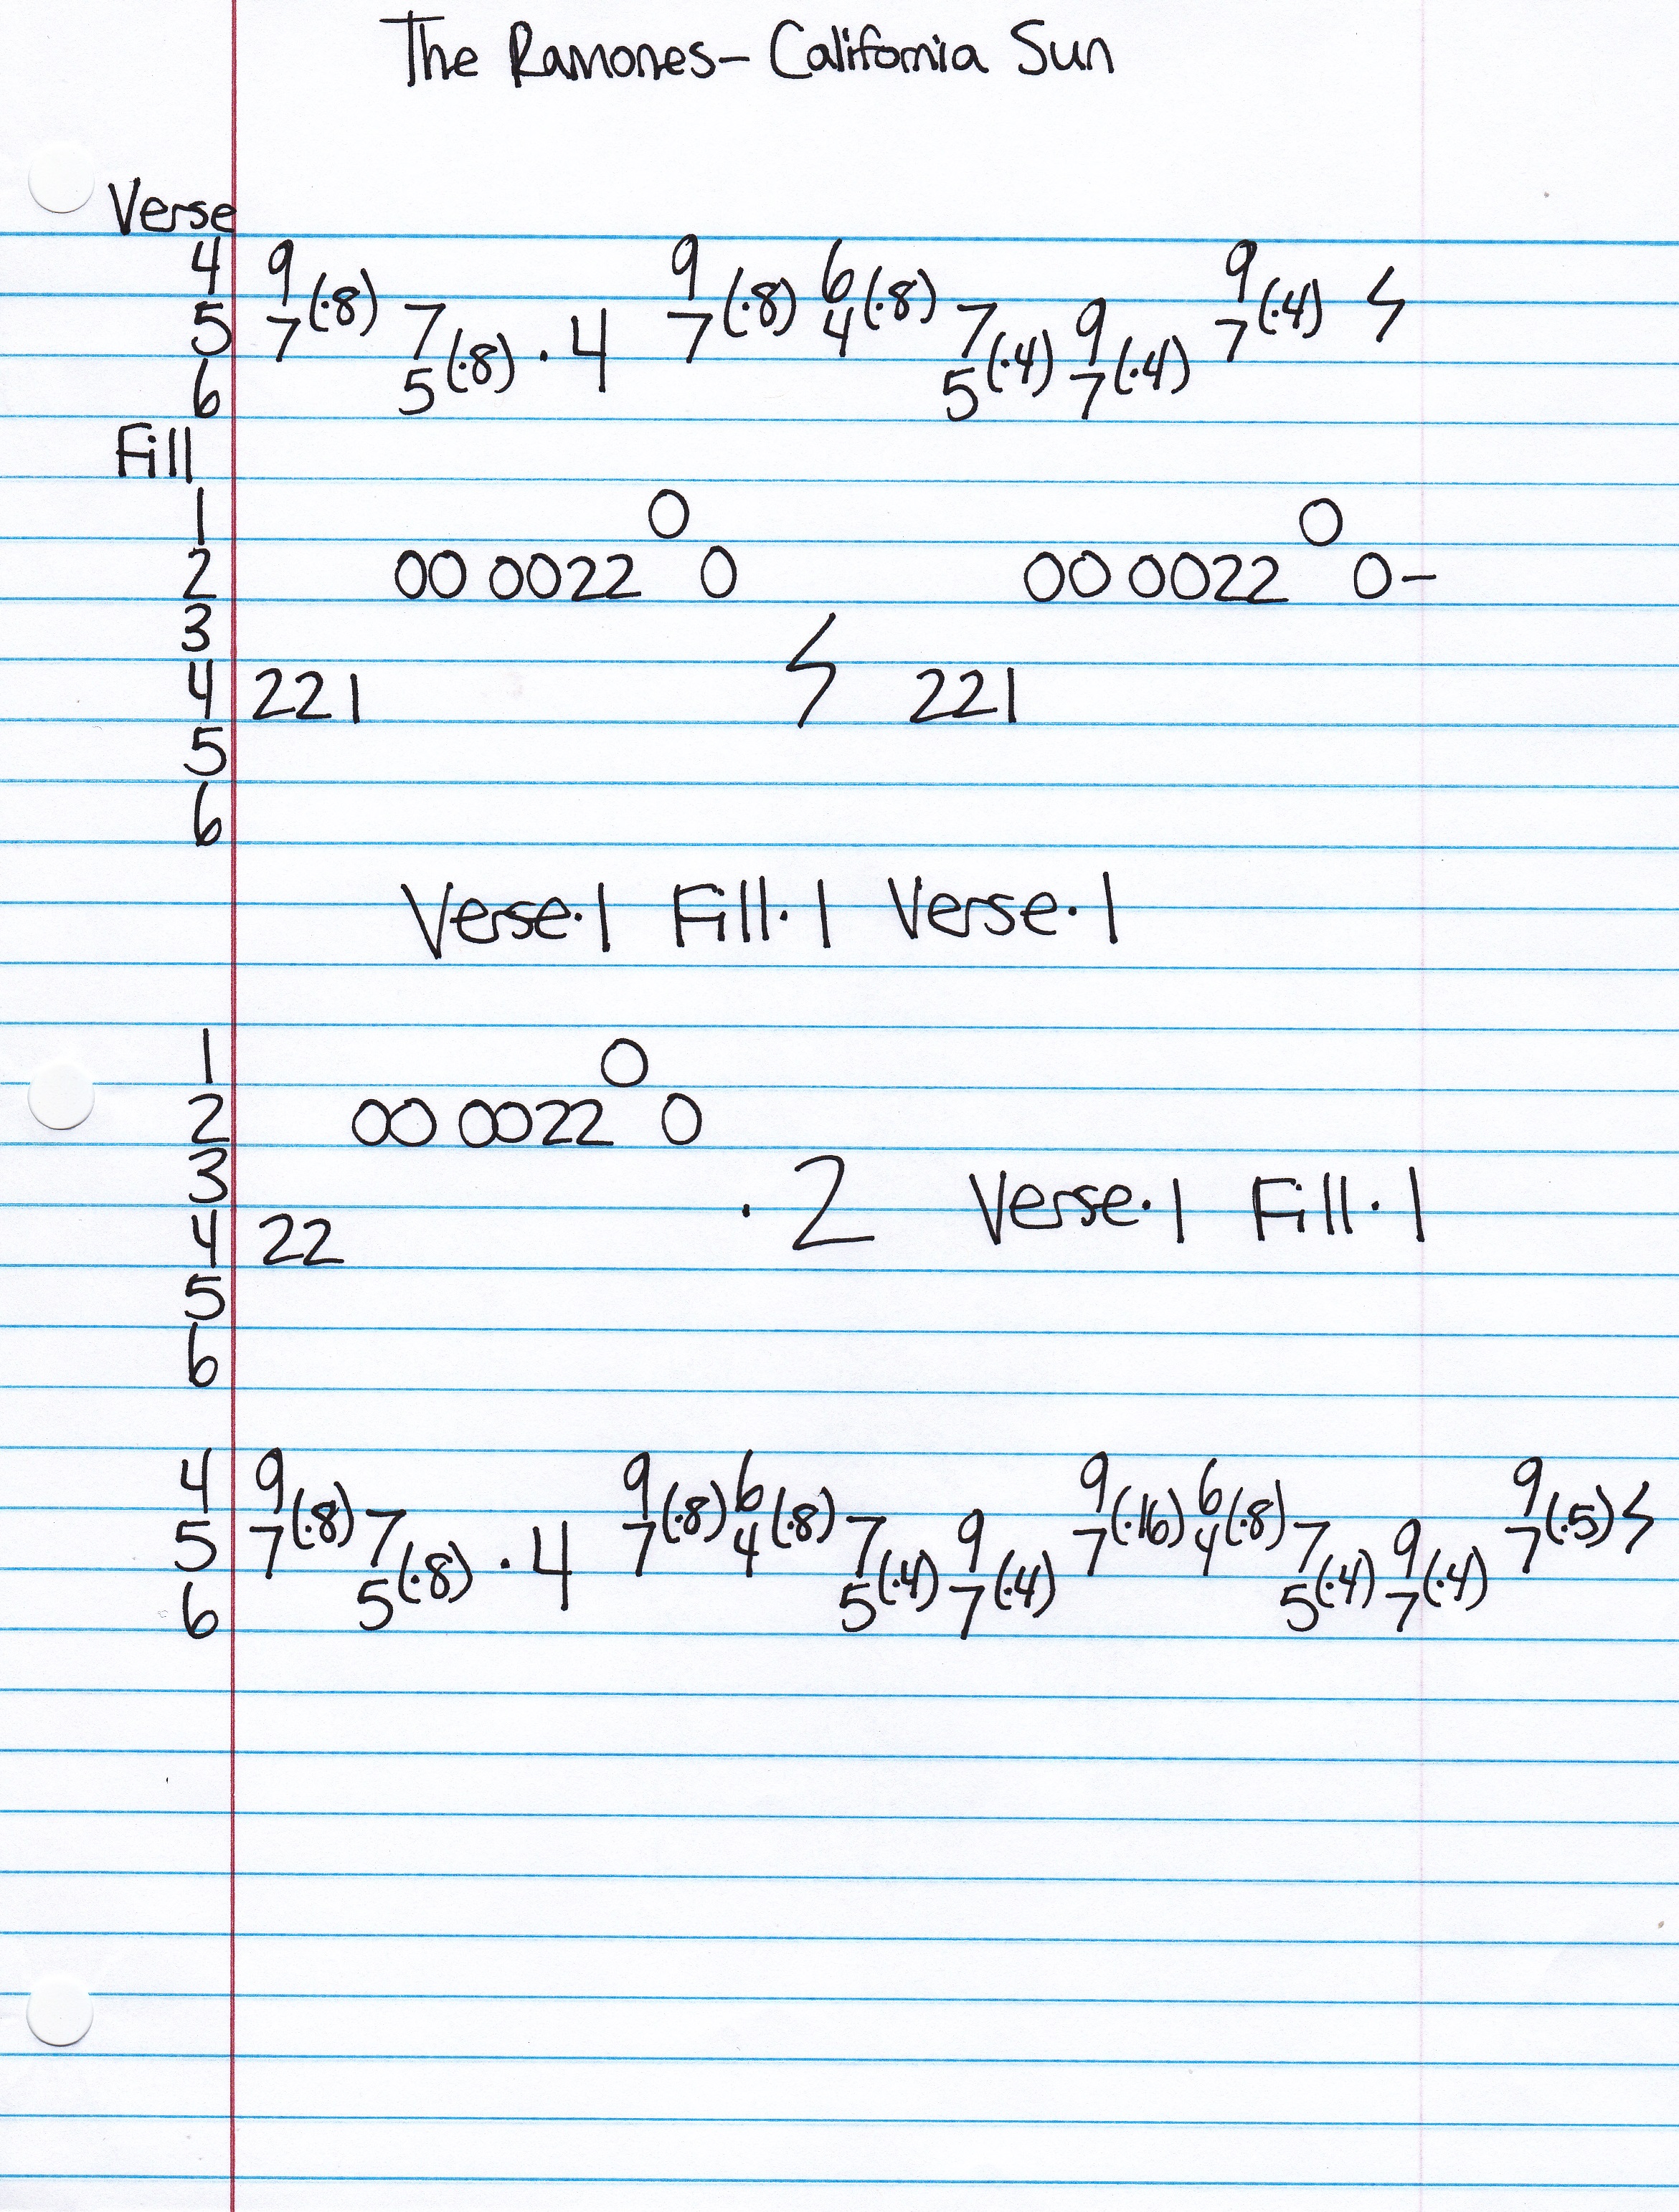 The Ramones- California Sun
Verse
4 9 9 6 9
5 7(·8) 7 7(·8) 4(·8) 7 9 7(·4) 𝄽
6 5(·8) ·4 5(·4) 7(·4)
Fill
1 0 0
2 00 0022 0 00 0022 0-
3
4 221 𝄽 221
5
6
Verse·1 Fill·1 Verse·1
1 0
2 00 0022 0
3 ·2 Verse·1 Fill·1
4 22
5
6
4 9 9 6 9 6 9
5 7(·8) 7 7(·8) 4(·8) 7 9 7(·16) 4(·8) 7 9 7(·5) 𝄽
6 5(·8) ·4 5(·4) 7(·4) 5(·4) 7(·4)